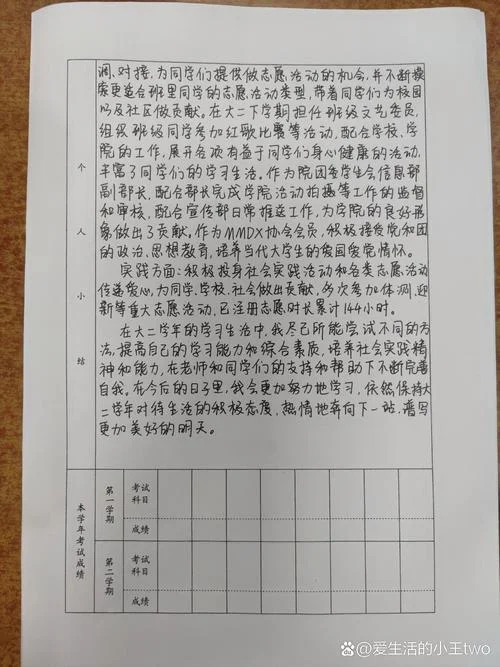 调、对接,为同学们提供做志愿活动的机会,并不断摸
索更适合班里同学的志愿活动类型,带着同学们为校园
以及社区做贡献。在大二下学期担任班级文艺委员,
组织班级同学参加红歌比赛等活动,配合学校、学
院的工作,展开各项有益于同学们身心健康的活动,
丰富了同学们的学习生活。作为院团委学生会信息部
副部长,配合部长完成学院活动拍摄等工作的监督
和审核,配合宣传部日常推送工作,为学院的良好形
象做出了贡献。作为MMDX协会会员,积极接受党和团
的政治、思想教育,培养当代大学生的爱国爱党情怀。
实践方面:积极投身社会实践活动和各类志愿活动
传递爱心,为同学、学校、社会做出贡献,多次参加体测、迎
新等重大志愿活动,已注册志愿时长累计144小时。
在大二学年的学习生活中,我尽己所能尝试不同的方
法,提高自己的学习能力和综合素质,培养社会实践精
神和能力,在老师和同学们的支持和帮助下不断完善
自我。在今后的日子里,我会更加努力地学习,依然保持大
二学年对待生活的积极态度,热情地奔向下一站,谱写
更加美好的明天。
个人小结
本学年考试成绩
第一学期
考试科目
成绩
第二学期
考试科目
成绩
@爱生活的小王two